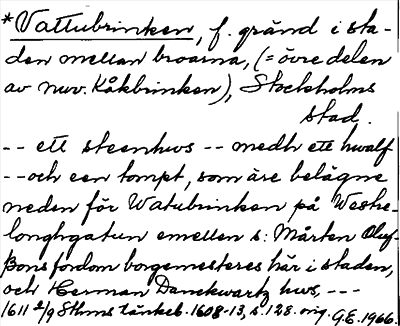 * Vattubrinken, f. gränd i sta-
den mellan broarna, (= övre delen
av nuv. Kåkbrinken), Stockholms
stad.
-- ett steenhws -- medh ett hwalf
-- och een tompt, som äre belägne
neden för Watubrinken på Weste-
longhgatun emellen s: Mårten Oluf-
ßons fordom borgemesteres här i staden,
och Herman Danckwartz hws, ---
1611 2/9 Sthms tänkeb. 1608-13, s. 128. orig. G.E. 1966.